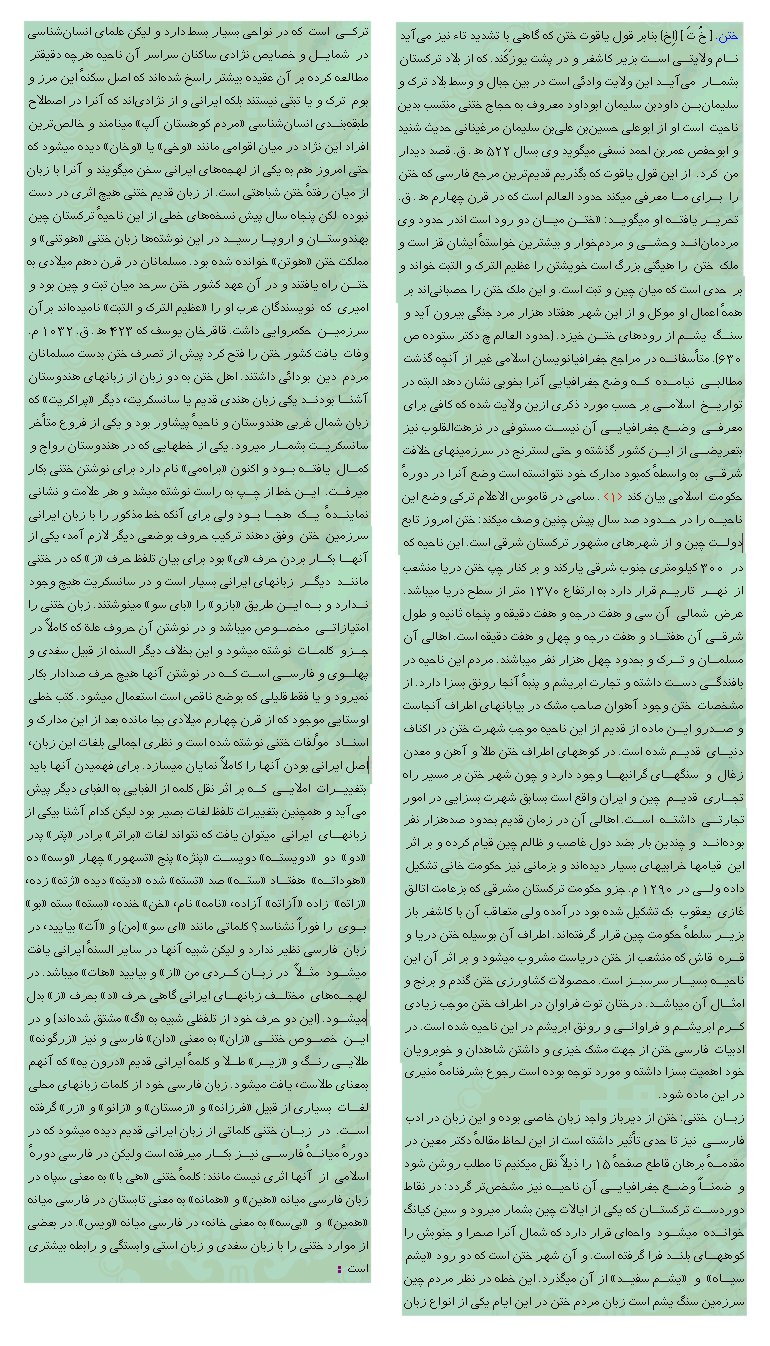 ختن. [ خُ تَ ] (اِخ) بنابر قول یاقوت ختن که گاهی با تشدید تاء نیز می‌آید
نام ولایتی است بزیر کاشغر و در پشت یوزکند. که از بلاد ترکستان
بشمار می‌آید این ولایت وادئی است در بین جبال و وسط بلاد ترک و
سلیمان‌بن داودبن سلیمان ابوداود معروف به حجاج ختنی منتسب بدین
ناحیت است او از ابوعلی حسین‌بن علی‌بن سلیمان مرغینانی حدیث شنید
و ابوحفص عمربن احمد نسفی میگوید وی بسال ۵۲۲ ه‍ . ق. قصد دیدار
من کرد. از این قول یاقوت که بگذریم قدیم‌ترین مرجع فارسی که ختن
را برای ما معرفی میکند حدود العالم است که در قرن چهارم ه‍ . ق.
تحریر یافته او میگوید: «ختن میان دو رود است اندر حدود وی
مردمان‌اند وحشی و مردم‌خوار و بیشترین خواستهٔ ایشان قز است و
ملک ختن را هیئتی بزرگ است خویشتن را عظیم الترک و التبت خواند و
بر حدی است که میان چین و تبت است. و این ملک ختن را خصیانی‌اند بر
همهٔ اعمال او موکل و از این شهر هفتاد هزار مرد جنگی بیرون آید و
سنگ یشم از رودهای ختن خیزد. (حدود العالم چ دکتر ستوده ص
۶۳۰). متأسفانه در مراجع جغرافیانویسان اسلامی غیر از آنچه گذشت
مطالبی نیامده که وضع جغرافیایی آنرا بخوبی نشان دهد البته در
تواریخ اسلامی بر حسب مورد ذکری ازین ولایت شده که کافی برای
معرفی وضع جغرافیایی آن نیست مستوفی در نزهت‌القلوب نیز
بتعریضی از این کشور گذشته و حتی لسترنج در سرزمینهای خلافت
شرقی به واسطهٔ کمبود مدارک خود نتوانسته است وضع آنرا در دورهٔ
حکومت اسلامی بیان کند <۱> . سامی در قاموس الاعلام ترکی وضع این
ناحیه را در حدود صد سال پیش چنین وصف میکند: ختن امروز تابع
دولت چین و از شهرهای مشهور ترکستان شرقی است. این ناحیه که
در ۳۰۰ کیلومتری جنوب شرقی یارکند و بر کنار چپ ختن دریا منشعب
از نهر تاریم قرار دارد به ارتفاع ۱۳۷۰ متر از سطح دریا میباشد.
عرض شمالی آن سی و هفت درجه و هفت دقیقه و پنجاه ثانیه و طول
شرقی آن هفتاد و هفت درجه و چهل و هفت دقیقه است. اهالی آن
مسلمان و ترک و بحدود چهل هزار نفر میباشند. مردم این ناحیه در
بافندگی دست داشته و تجارت ابریشم و پنبهٔ آنجا رونق بسزا دارد. از
مشخصات ختن وجود آهوان صاحب مشک در بیابانهای اطراف آنجاست
و صدرو این ماده از قدیم از این ناحیه موجب شهرت ختن در اکناف
دنیای قدیم شده است. در کوههای اطراف ختن طلا و آهن و معدن
زغال و سنگهای گرانبها وجود دارد و چون شهر ختن بر مسیر راه
تجاری قدیم چین و ایران واقع است بسابق شهرت بسزایی در امور
تجارتی داشته است. اهالی آن در زمان قدیم بحدود صدهزار نفر
بوده‌اند و چندین بار بضد دول غاصب و ظالم چین قیام کرده و بر اثر
این قیامها خرابیهای بسیار دیده‌اند و بزمانی نیز حکومت خانی تشکیل
داده ولی در ۱۲۹۰ م. جزو حکومت ترکستان مشرقی که بزعامت اتالق
غازی یعقوب بک تشکیل شده بود در آمده ولی متعاقب آن با کاشغر باز
بزیر سلطهٔ حکومت چین قرار گرفته‌اند. اطراف آن بوسیله ختن دریا و
قره قاش که منشعب از ختن دریاست مشروب میشود و بر اثر آن این
ناحیه بسیار سرسبز است. محصولات کشاورزی ختن گندم و برنج و
امثال آن میباشد. درختان توت فراوان در اطراف ختن موجب زیادی
کرم ابریشم و فراوانی و رونق ابریشم در این ناحیه شده است. در
ادبیات فارسی ختن از جهت مشک خیزی و داشتن شاهدان و خوبرویان
خود اهمیت بسزا داشته و مورد توجه بوده است رجوع بشرفنامهٔ منیری
در این ماده شود.
زبان ختنی: ختن از دیرباز واجد زبان خاصی بوده و این زبان در ادب
فارسی نیز تا حدی تأثیر داشته است از این لحاظ مقالهٔ دکتر معین در
مقدمهٔ برهان قاطع صفحهٔ ۱۵ را ذیلاً نقل میکنیم تا مطلب روشن شود
و ضمناً وضع جغرافیایی آن ناحیه نیز مشخص‌تر گردد: در نقاط
دوردست ترکستان که یکی از ایالات چین بشمار میرود و سین کیانگ
خوانده میشود واحه‌ای قرار دارد که شمال آنرا صحرا و جنوبش را
کوههای بلند فرا گرفته است. و آن شهر ختن است که دو رود «یشم
سیاه» و «یشم سفید» از آن میگذرد. این خطه در نظر مردم چین
سرزمین سنگ یشم است زبان مردم ختن در این ایام یکی از انواع زبان
ترکی است که در نواحی بسیار بسط دارد و لیکن علمای انسان‌شناسی
در شمایل و خصایص نژادی ساکنان سراسر آن ناحیه هرچه دقیقتر
مطالعه کرده بر آن عقیده بیشتر راسخ شده‌اند که اصل سکنهٔ این مرز و
بوم ترک و یا تبتی نیستند بلکه ایرانی و از نژادی‌اند که آنرا در اصطلاح
طبقه‌بندی انسان‌شناسی «مردم کوهستان آلپ» مینامند و خالص‌ترین
افراد این نژاد در میان اقوامی مانند «وخی» یا «وخان» دیده میشود که
حتی امروز هم به یکی از لهجه‌های ایرانی سخن میگویند و آنرا با زبان
از میان رفتهٔ ختن شباهتی است. از زبان قدیم ختنی هیچ اثری در دست
نبوده لکن پنجاه سال پیش نسخه‌های خطی از این ناحیهٔ ترکستان چین
بهندوستان و اروپا رسید در این نوشته‌ها زبان ختنی «هوتنی» و
مملکت ختن «هوتن» خوانده شده بود. مسلمانان در قرن دهم میلادی به
ختن راه یافتند و در آن عهد کشور ختن سرحد میان تبت و چین بود و
امیری که نویسندگان عرب او را «عظیم الترک و التبت» نامیده‌اند برآن
سرزمین حکمروایی داشت. قاقرخان یوسف که ۴۲۳ ه‍ . ق. ۱۰۳۲ م.
وفات یافت کشور ختن را فتح کرد پیش از تصرف ختن بدست مسلمانان
مردم دین بودائی داشتند. اهل ختن به دو زبان از زبانهای هندوستان
آشنا بودند یکی زبان هندی قدیم یا سانسکریت، دیگر «پراکریت» که
زبان شمال غربی هندوستان و ناحیهٔ پیشاور بود و یکی از فروع متأخر
سانسکریت بشمار میرود. یکی از خطهایی که در هندوستان رواج و
کمال یافته بود و اکنون «براه‌می» نام دارد برای نوشتن ختنی بکار
میرفت. این خط از چپ به راست نوشته میشد و هر علامت و نشانی
نمایندهٔ یک هجا بود ولی برای آنکه خط مذکور را با زبان ایرانی
سرزمین ختن وفق دهند ترکیب حروف بوضعی دیگر لازم آمد، یکی از
آنها بکار بردن حرف «ی» بود برای بیان تلفظ حرف «ز» که در ختنی
مانند دیگر زبانهای ایرانی بسیار است و در سانسکریت هیچ وجود
ندارد و به این طریق «بازو» را «بای سو» مینوشتند. زبان ختنی را
امتیازاتی مخصوص میباشد و در نوشتن آن حروف علة که کاملاً در
جزو کلمات نوشته میشود و این بخلاف دیگر السنه از قبیل سغدی و
پهلوی و فارسی است که در نوشتن آنها هیچ حرف صدادار بکار
نمیرود و یا فقط قلیلی که بوضع ناقص است استعمال میشود. کتب خطی
اوستایی موجود که از قرن چهارم میلادی بجا مانده بعد از این مدارک و
اسناد مولّفات ختنی نوشته شده است و نظری اجمالی بلغات این زبان،
اصل ایرانی بودن آنها را کاملاً نمایان میسازد. برای فهمیدن آنها باید
بتغییرات املایی که بر اثر نقل کلمه از الفبایی به الفبای دیگر پیش
می‌آید و همچنین بتغییرات تلفظ لغات بصیر بود لیکن کدام آشنا بیکی از
زبانهای ایرانی میتوان یافت که نتواند لغات «براتر» برادر «پتر» پدر
«دو» دو «دویسته» دویست «پنژه» پنج «تسهور» چهار «وسه» ده
«هوداته» هفتاد «سته» صد «تسته» شده «دیته» دیده «ژته» زده،
«زاته» زاده «آزاته» آزاده، «نامه» نام، «خن» خنده، «بسته» بسته «بو»
بوی را فوراً نشناسد؟ کلماتی مانند «ای سو» (من) و «آت» بیایید، در
زبان فارسی نظیر ندارد و لیکن شبیه آنها در سایر السنهٔ ایرانی یافت
میشود مثلاً در زبان کردی من «از» و بیایید «هات» میباشد. در
لهجه‌های مختلف زبانهای ایرانی گاهی حرف «د» بحرف «ز» بدل
میشود. (این دو حرف خود از تلفظی شبیه به «گ» مشتق شده‌اند) و در
این خصوص ختنی «زان» به معنی «دان» فارسی و نیز «زرگونه»
طلایی رنگ و «زیر» طلا و کلمهٔ ایرانی قدیم «درون یه» که آنهم
بمعنای طلاست، یافت میشود. زبان فارسی خود از کلمات زبانهای محلی
لغات بسیاری از قبیل «فرزانه» و «زمستان» و «زانو» و «زر» گرفته
است. در زبان ختنی کلماتی از زبان ایرانی قدیم دیده میشود که در
دورهٔ میانهٔ فارسی نیز بکار میرفته است ولیکن در فارسی دورهٔ
اسلامی از آنها اثری نیست مانند: کلمهٔ ختنی «هی با» به معنی سپاه در
زبان فارسی میانه «هین» و «همانه» به معنی تابستان در فارسی میانه
«همین» و «بی‌سه» به معنی خانه، در فارسی میانه «ویس». در بعضی
از موارد ختنی را با زبان سغدی و زبان استی وابستگی و رابطه بیشتری
است :